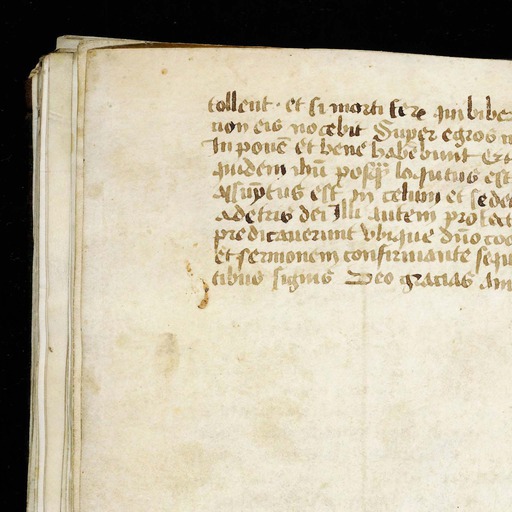 tollent · et si morti fer quid biber
non eis nocebit Super egros
Inponē et bene habebunt Et
quidem ihū posq̄ loqutus est
assūptus est In celum et sedet
Adetris dei Illi autem profect
predicauerunt vbique dño coo
et sermonem confirmante sequ
tibus signis Deo gracias Am